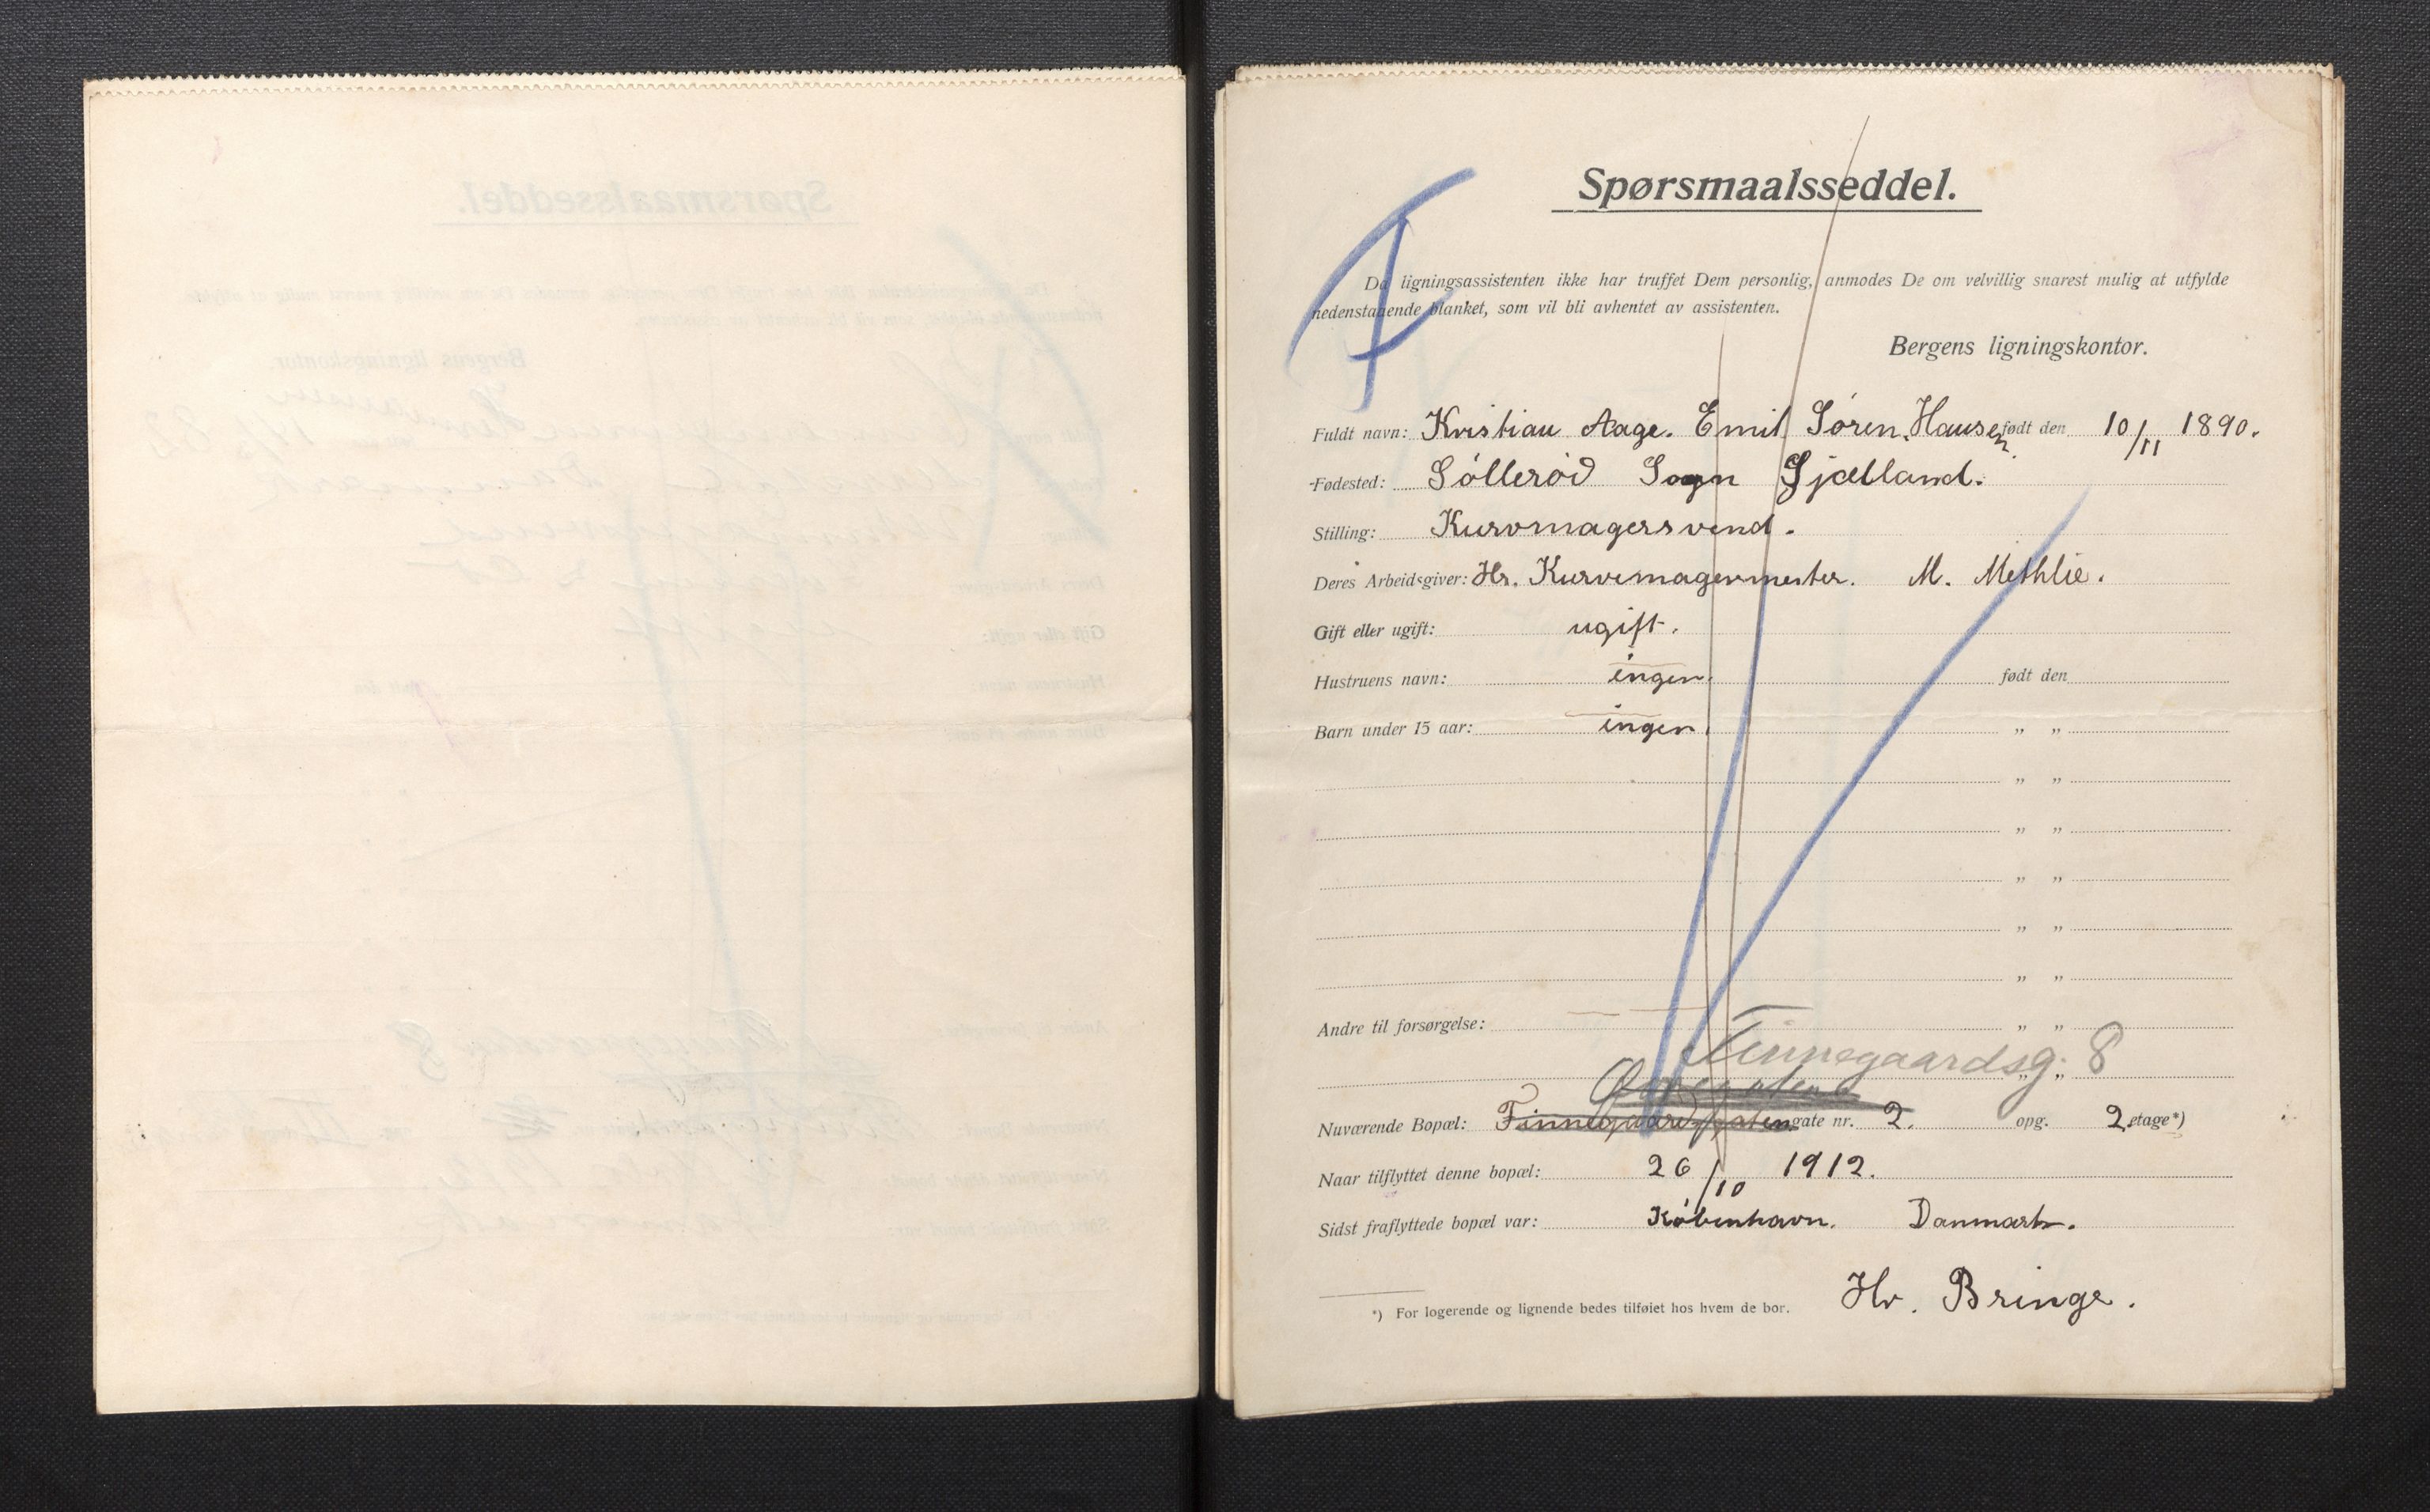 Spørsmaalsseddel.
Da ligningsassistenten ikke har truffet Dem personlig, anmodes De om velvillig snarest mulig at utfylde
nedenstaaende blanket, som vil bli avhentet av assistenten.
Bergens ligningskontor.
Fuldt navn: Kristian Aage. Emil Sören. Hansen født den 10/11 1890.
Fødested: Sölleröd Sogn Sjælland.
Stilling: Kurvmagersvend.
Deres Arbeidsgiver: Hr. Kurvemagermester. M. Methlie.
Gift eller ugift: ugift.
Hustruens navn: ingen. født den
Barn under 15 aar: ingen. „ „
„ „
„ „
„ „
„ „
„ „
Andre til forsørgelse: „ „
Finnegaardsg. 8 „ „
Nuværende Bopæl: Finnegaardsgaten gate nr. 2. opg. 2. etage*)
Naar tilflyttet denne bopæl: 26/10 1912.
Sidst fraflyttede bopæl var: Köbenhavn. Danmark.
*) For logerende og lignende bedes tilføiet hos hvem de bor. Hr. Bringe.